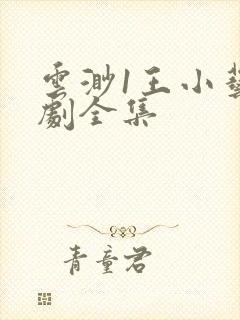 雲渺1王小藝
劇全集
青童君